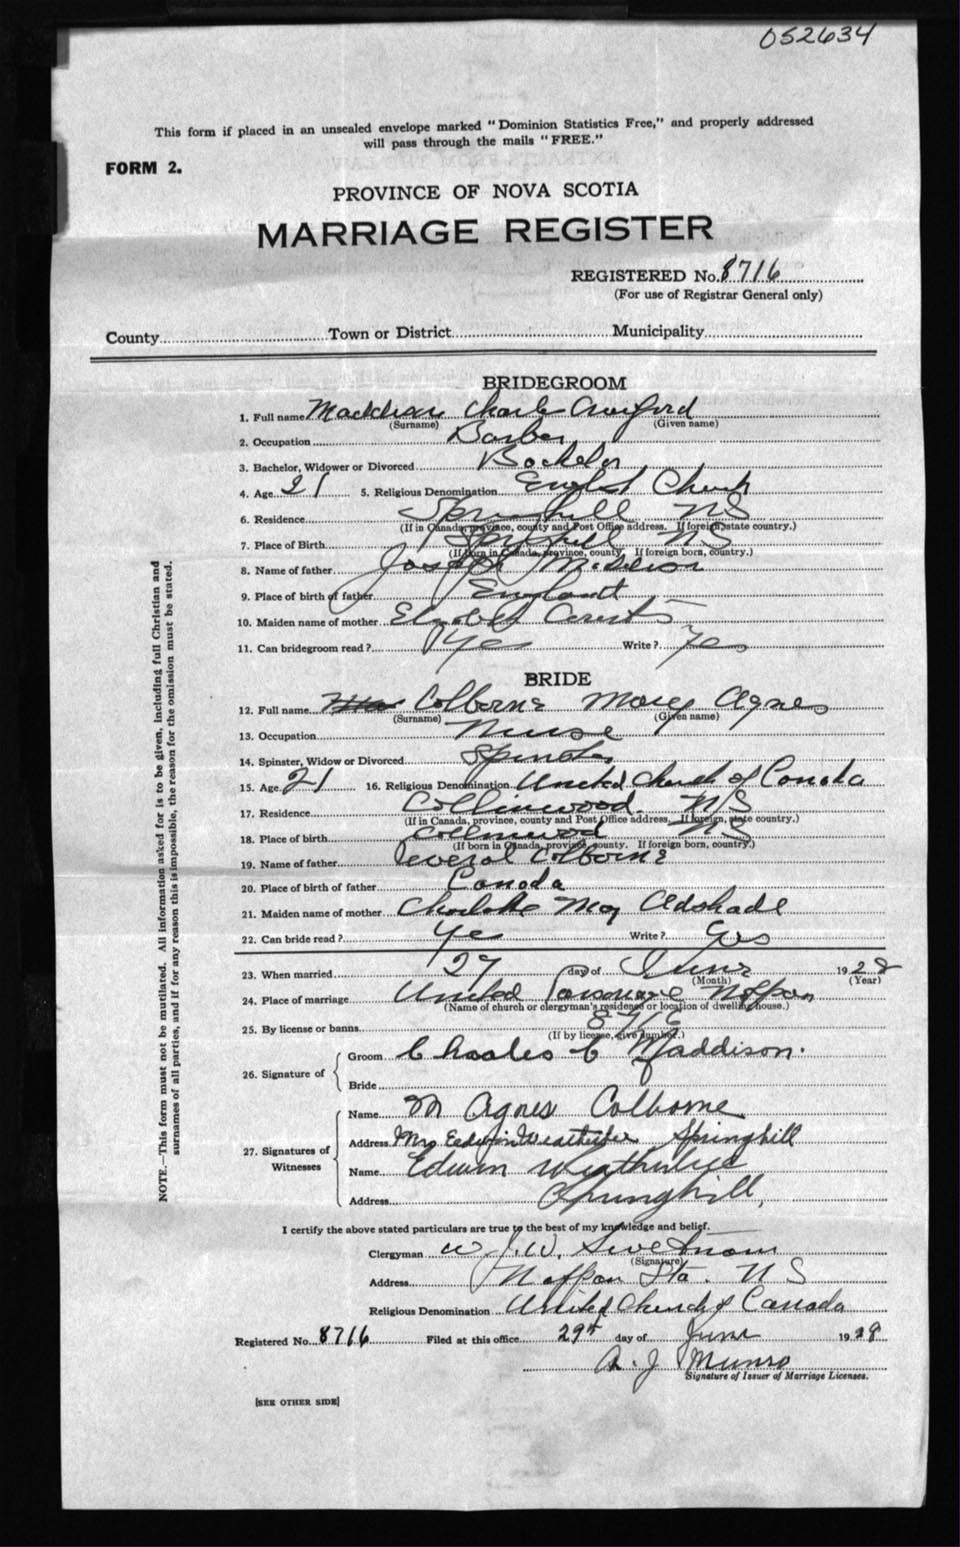 052634
This form if placed in an unsealed envelope marked "Dominion Statistics Free," and properly addressed
will pass through the mails "FREE."
FORM 2.
PROVINCE OF NOVA SCOTIA
MARRIAGE REGISTER
REGISTERED No. 8716
(For use of Registrar General only)
County Town or District Municipality
BRIDEGROOM
1. Full name Charles Crawford
(Surname) (Given name)
2. Occupation Barber
3. Bachelor, Widower or Divorced Bachelor
4. Age 21 5. Religious Denomination English Church
6. Residence Springhill NS
(If in Canada, province, county and Post Office address. If foreign, state country.)
7. Place of Birth Springhill NS
(If born in Canada, province, county. If foreign born, country.)
8. Name of father Joseph
9. Place of birth of father England
10. Maiden name of mother Elizabeth
11. Can bridegroom read? Yes Write? Yes
BRIDE
12. Full name Colborne Mary Agnes
(Surname) (Given name)
13. Occupation Nurse
14. Spinster, Widow or Divorced Spinster
15. Age 21 16. Religious Denomination United Church of Canada
17. Residence Collinwood N/S
(If in Canada, province, county and Post Office address. If foreign, state country.)
18. Place of birth Collinwood NS
(If born in Canada, province, county. If foreign born, country.)
19. Name of father Colborne
20. Place of birth of father Canada
21. Maiden name of mother Charlotte May Adshade
22. Can bride read? Yes Write? Yes
23. When married 27 day of June 1928
(Month) (Year)
24. Place of marriage United Parsonage Nappan
(Name of church or clergyman's residence or location of dwelling house.)
25. By license or banns 8716
(If by license, give number.)
26. Signature of
Groom Charles C Maddison.
Bride
27. Signatures of
Witnesses
Name M Agnes Colborne
Address Mrs Weatherbee Springhill
Name Edwin Weatherbee
Address Springhill,
I certify the above stated particulars are true to the best of my knowledge and belief.
Clergyman W. J. W. Swetnam
(Signature)
Address Nappan Sta. N S
Religious Denomination United Church of Canada
Registered No. 8716 Filed at this office 29th day of June 1928
A. J Munro
Signature of Issuer of Marriage Licenses.
[SEE OTHER SIDE]
NOTE.—This form must not be mutilated. All information asked for is to be given, including full Christian and
surnames of all parties, and if for any reason this is impossible, the reason for the omission must be stated.